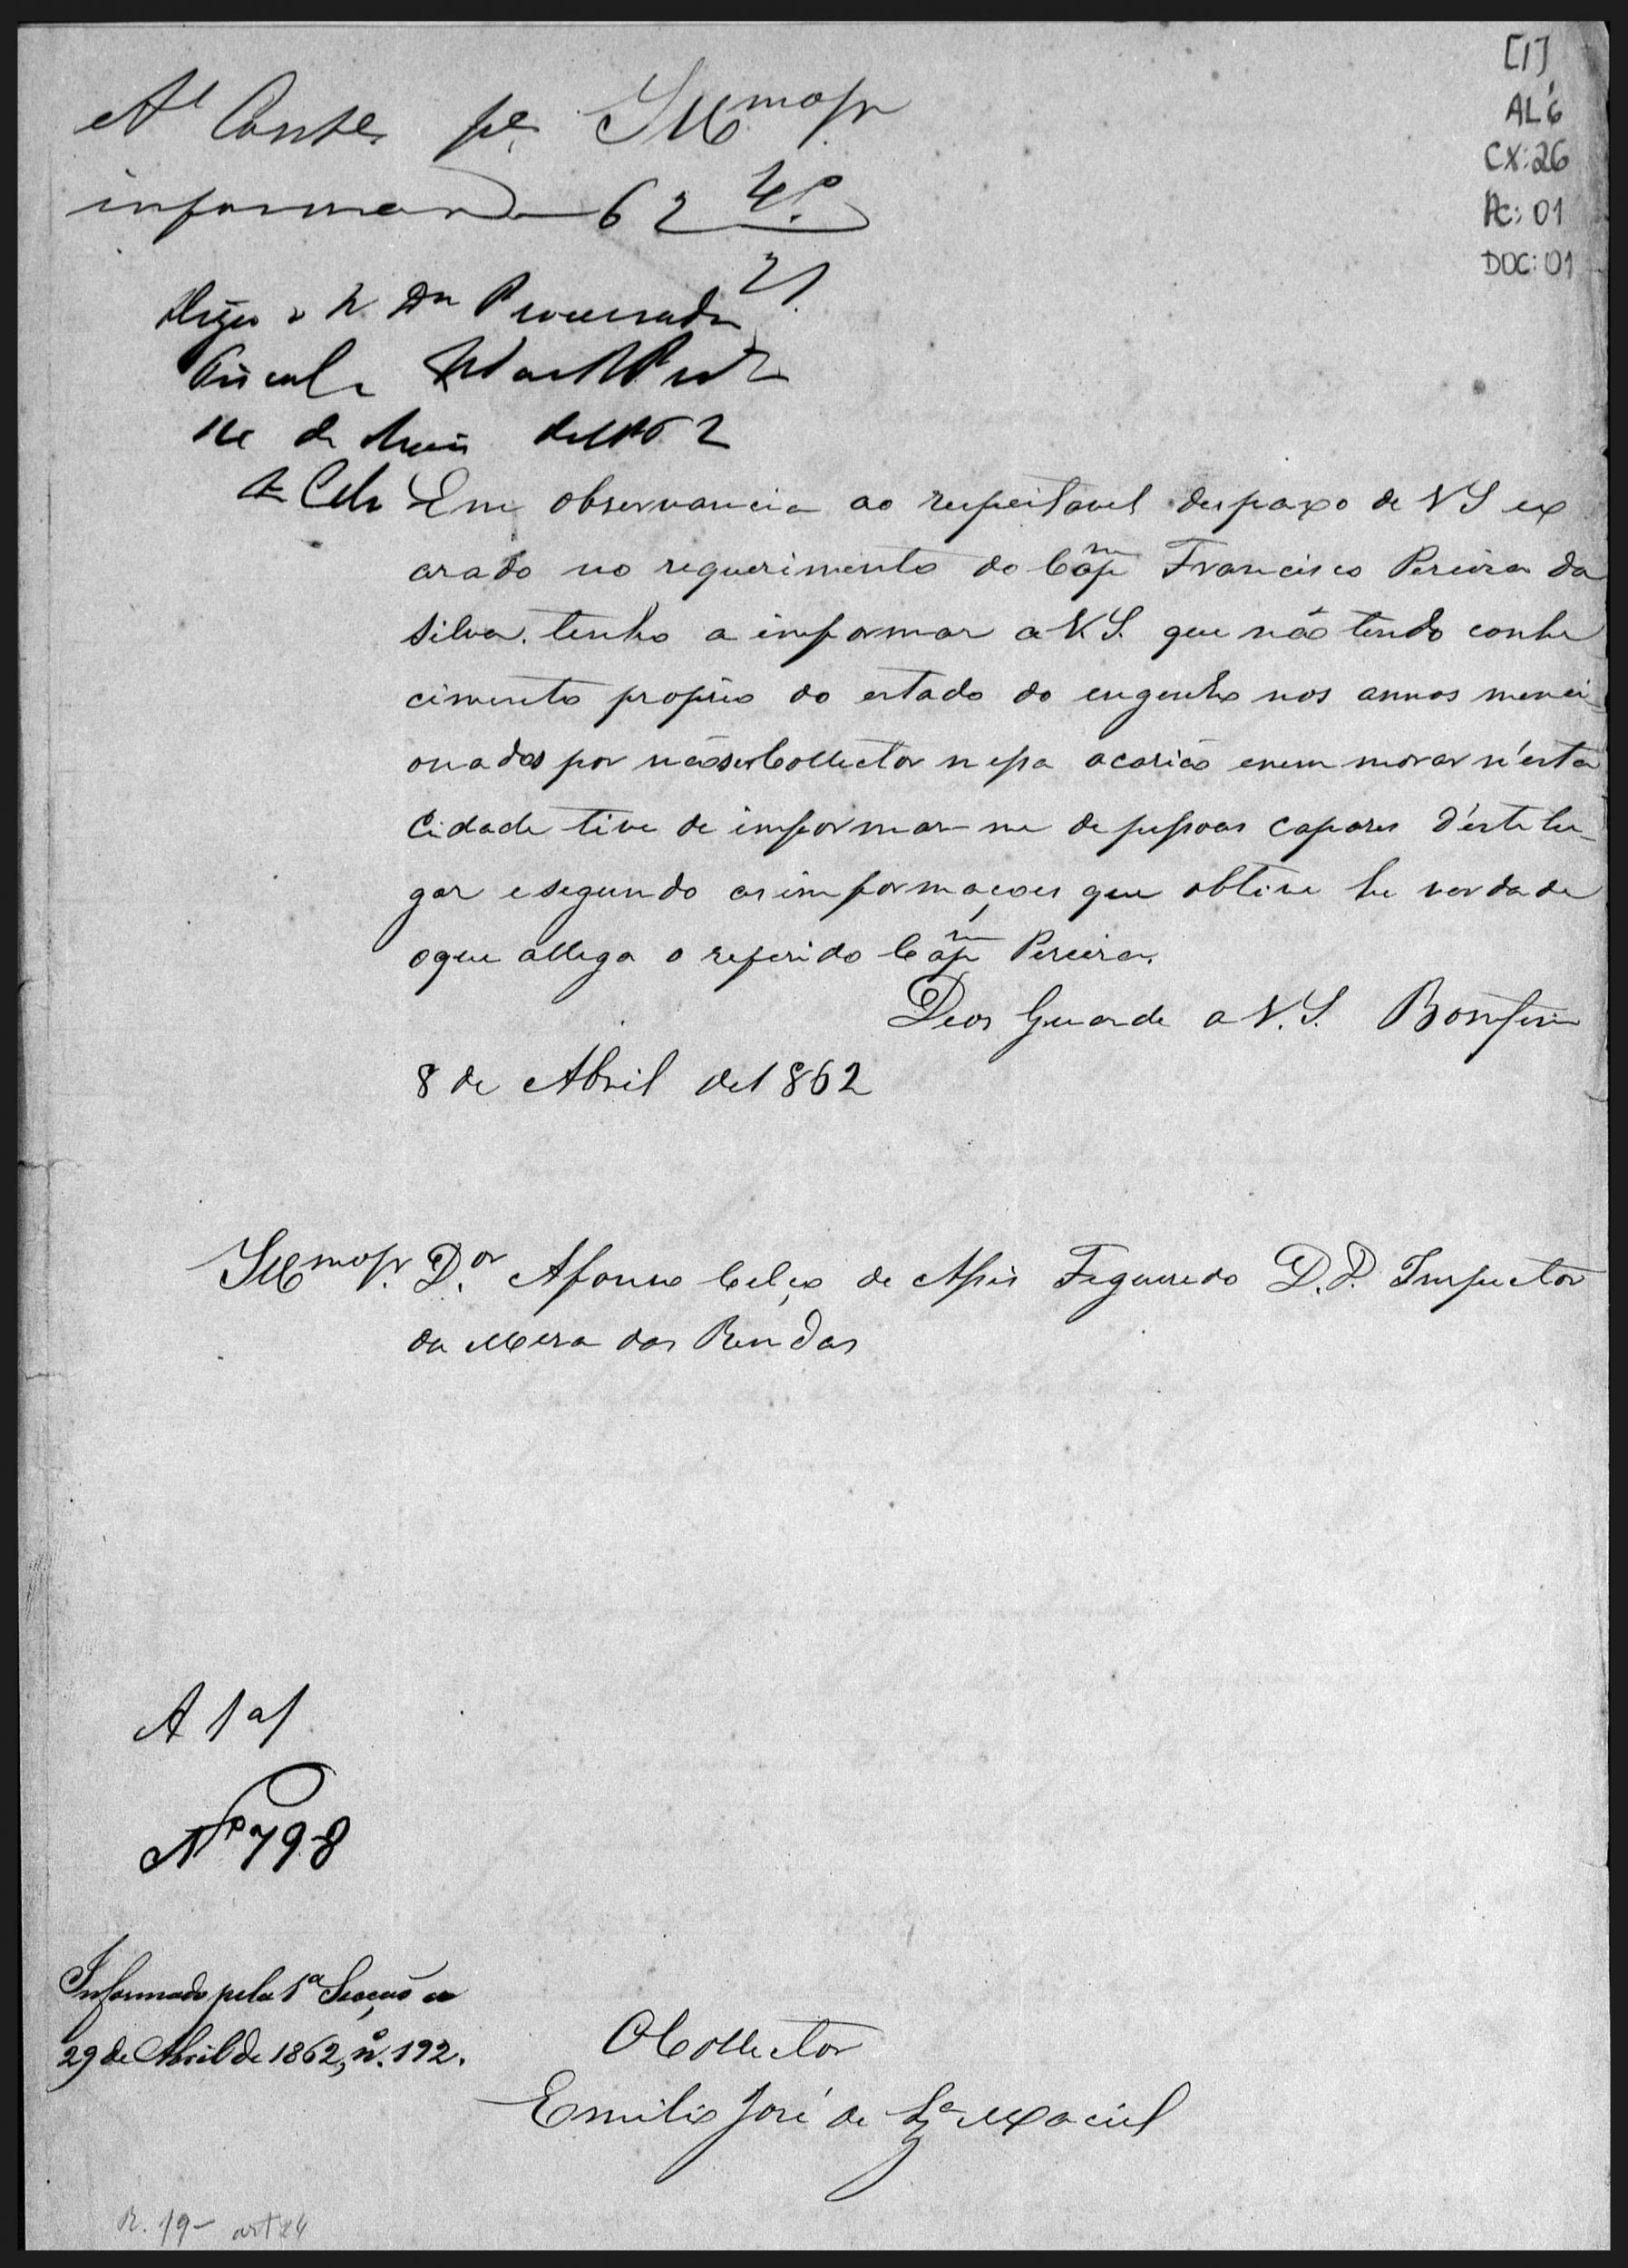 [1]
AL6
CX: 26
PC: 01
DOC: 01
Illmo Sr
informar 62
21
Procurador
Fiscal
de 1862
Em observancia ao respeitavel despaxo de VS ex
arado no requerimento do Capm Francisco Pereira da
Silva. tenho a informar a V.S. que não tendo conhe
cimento proprio do estado do engenho nos annos menci
onados por não ser Collector nessa ocasião enem morar n'esta
Cidade tive de informar-me de pessoas capazes d'este lu-
gar e segundo as informaçoes que obtive he verdade
oque allega o referido Capm Pereira.
Deos Guarde a V.S. Bomfim
8 de Abril de 1862
Illmo Sr. D.or Afonso Celço de Assis Figueredo D.D. Inspector
da Mesa das Rendas
A 1a S
No 798
Informado pela 1a Secção a
29 de Abril de 1862, no. 192.
O Collector
Emilio José de Sza Maciel
R. 19- art 24